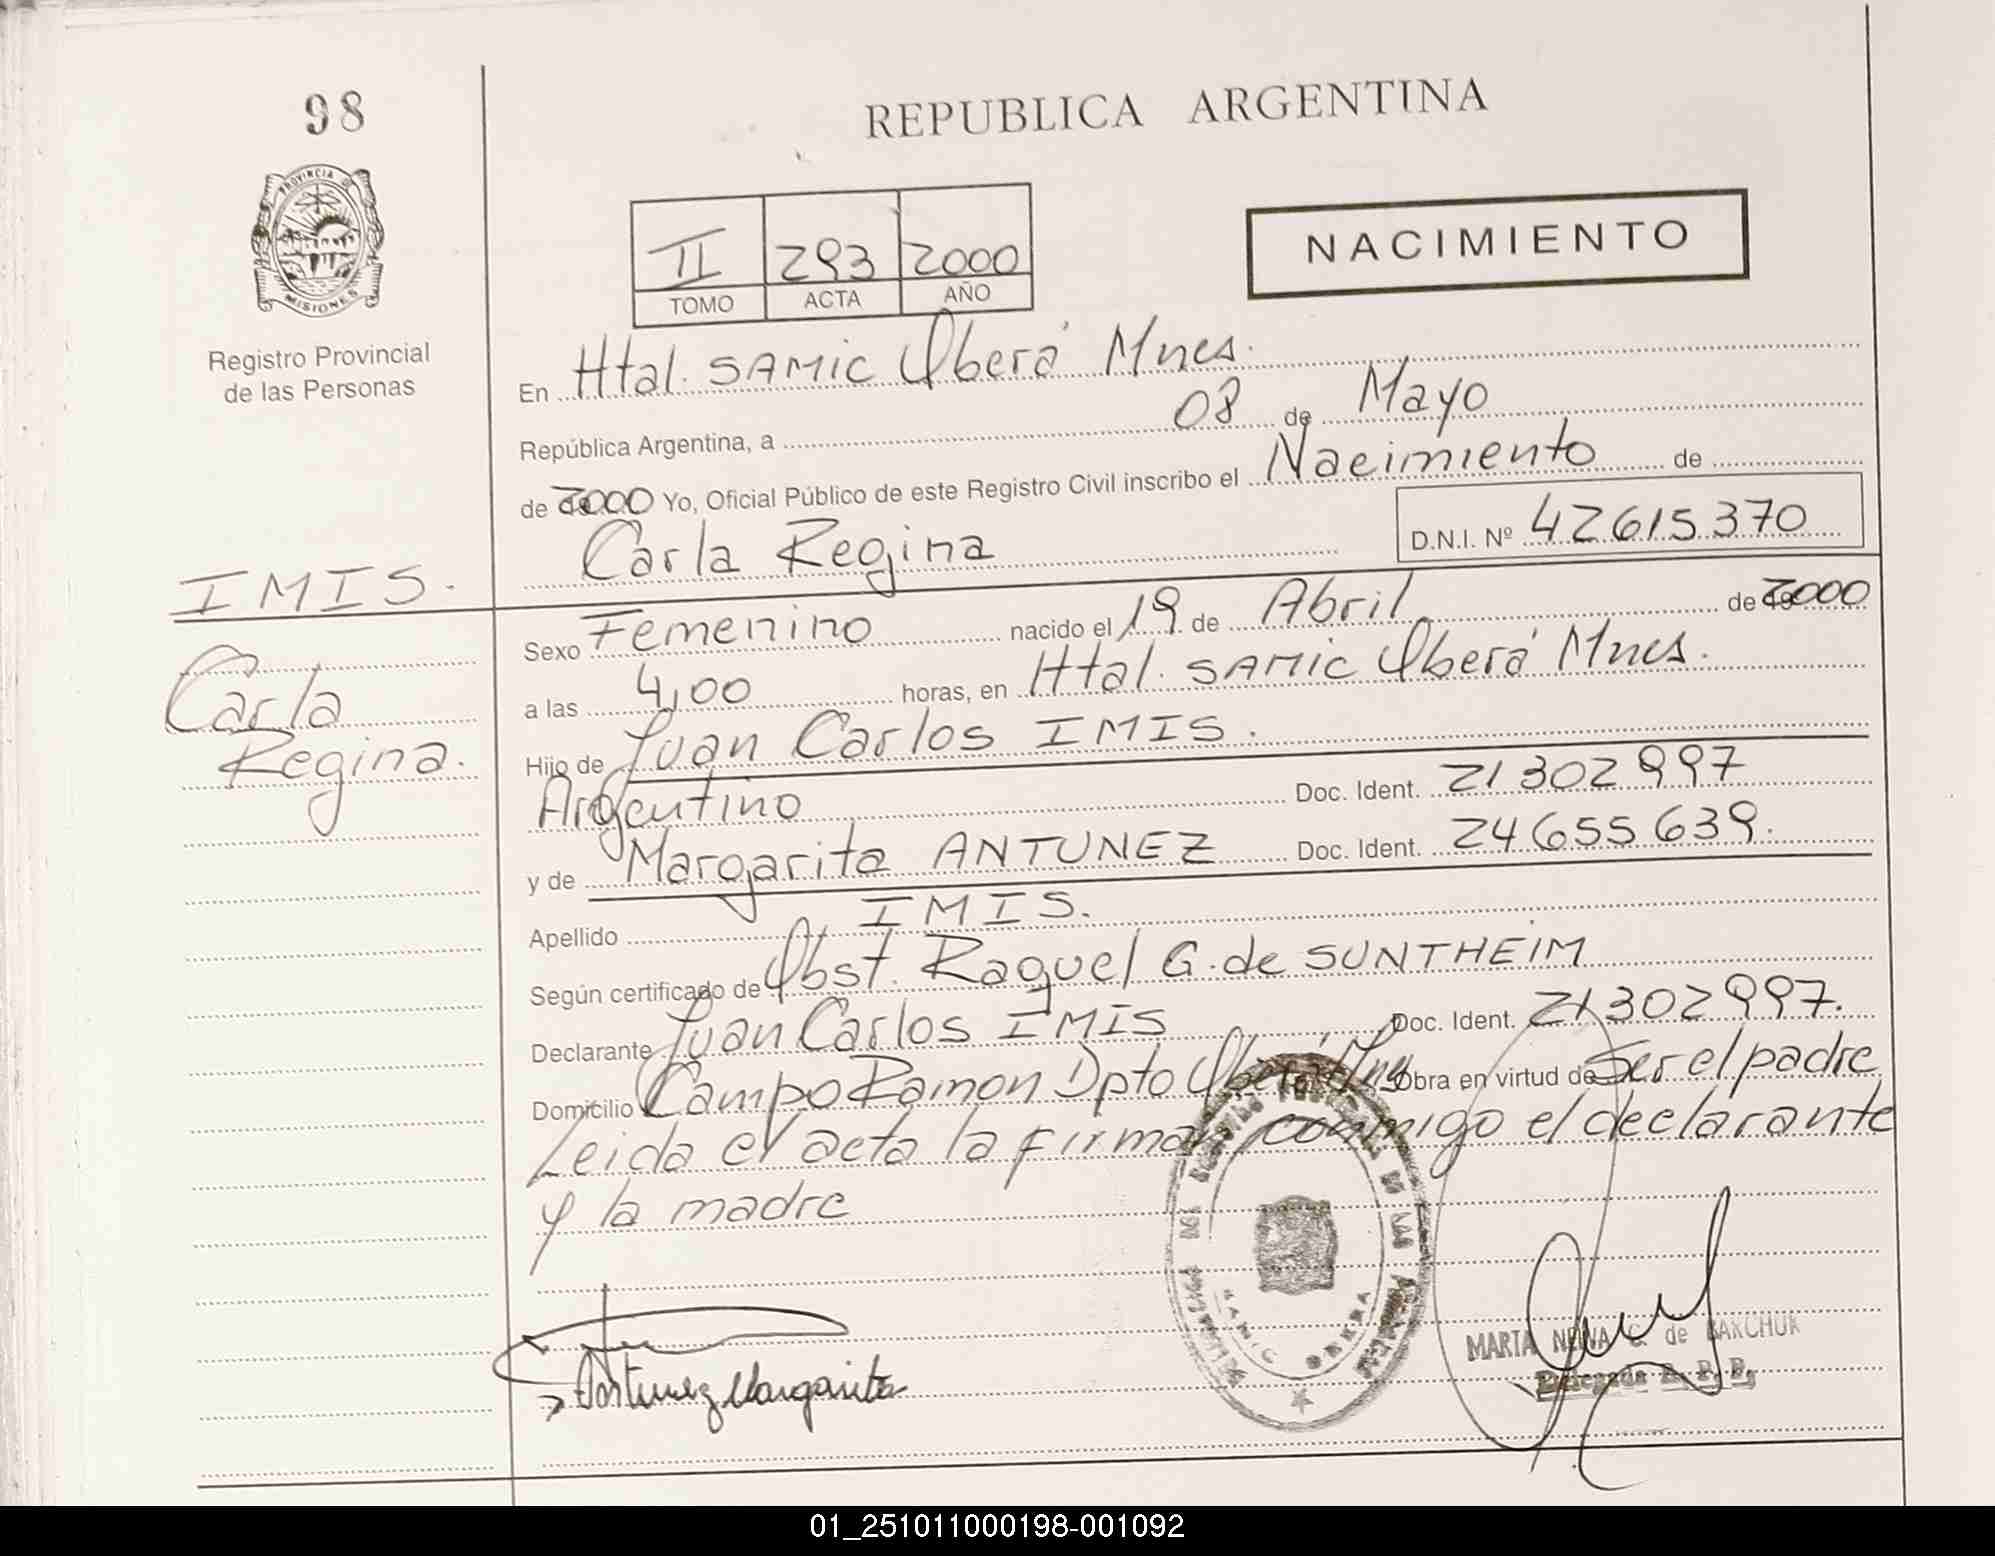 98
REPUBLICA ARGENTINA
PROVINCIA DE
MISIONES
Registro Provincial
de las Personas
II 293 2000
TOMO ACTA AÑO
NACIMIENTO
En Htal. SAMIC Oberá Mnes.
República Argentina, a 08 de Mayo
de 2000 Yo, Oficial Público de este Registro Civil inscribo el Nacimiento de
Carla Regina D.N.I. Nº 42615370
IMIS.
Carla
Regina.
Sexo Femenino nacido el 19 de Abril de 2000
a las 4,00 horas, en Htal. SAMIC Oberá Mnes.
Hijo de Juan Carlos IMIS.
Argentino Doc. Ident. 21302997
y de Margarita ANTUNEZ Doc. Ident. 24655639.
Apellido IMIS.
Según certificado de Obst. Raquel G. de SUNTHEIM
Declarante Juan Carlos IMIS Doc. Ident. 21302997.
Domicilio Campo Ramon Dpto Oberá Mns Obra en virtud de Ser el padre
Leida el acta la firman conmigo el declarante
y la madre
Antunez Margarita
SAMIC OBERA
MARIA de BARCHUK
Delegada R. P. P.
01_251011000198-001092